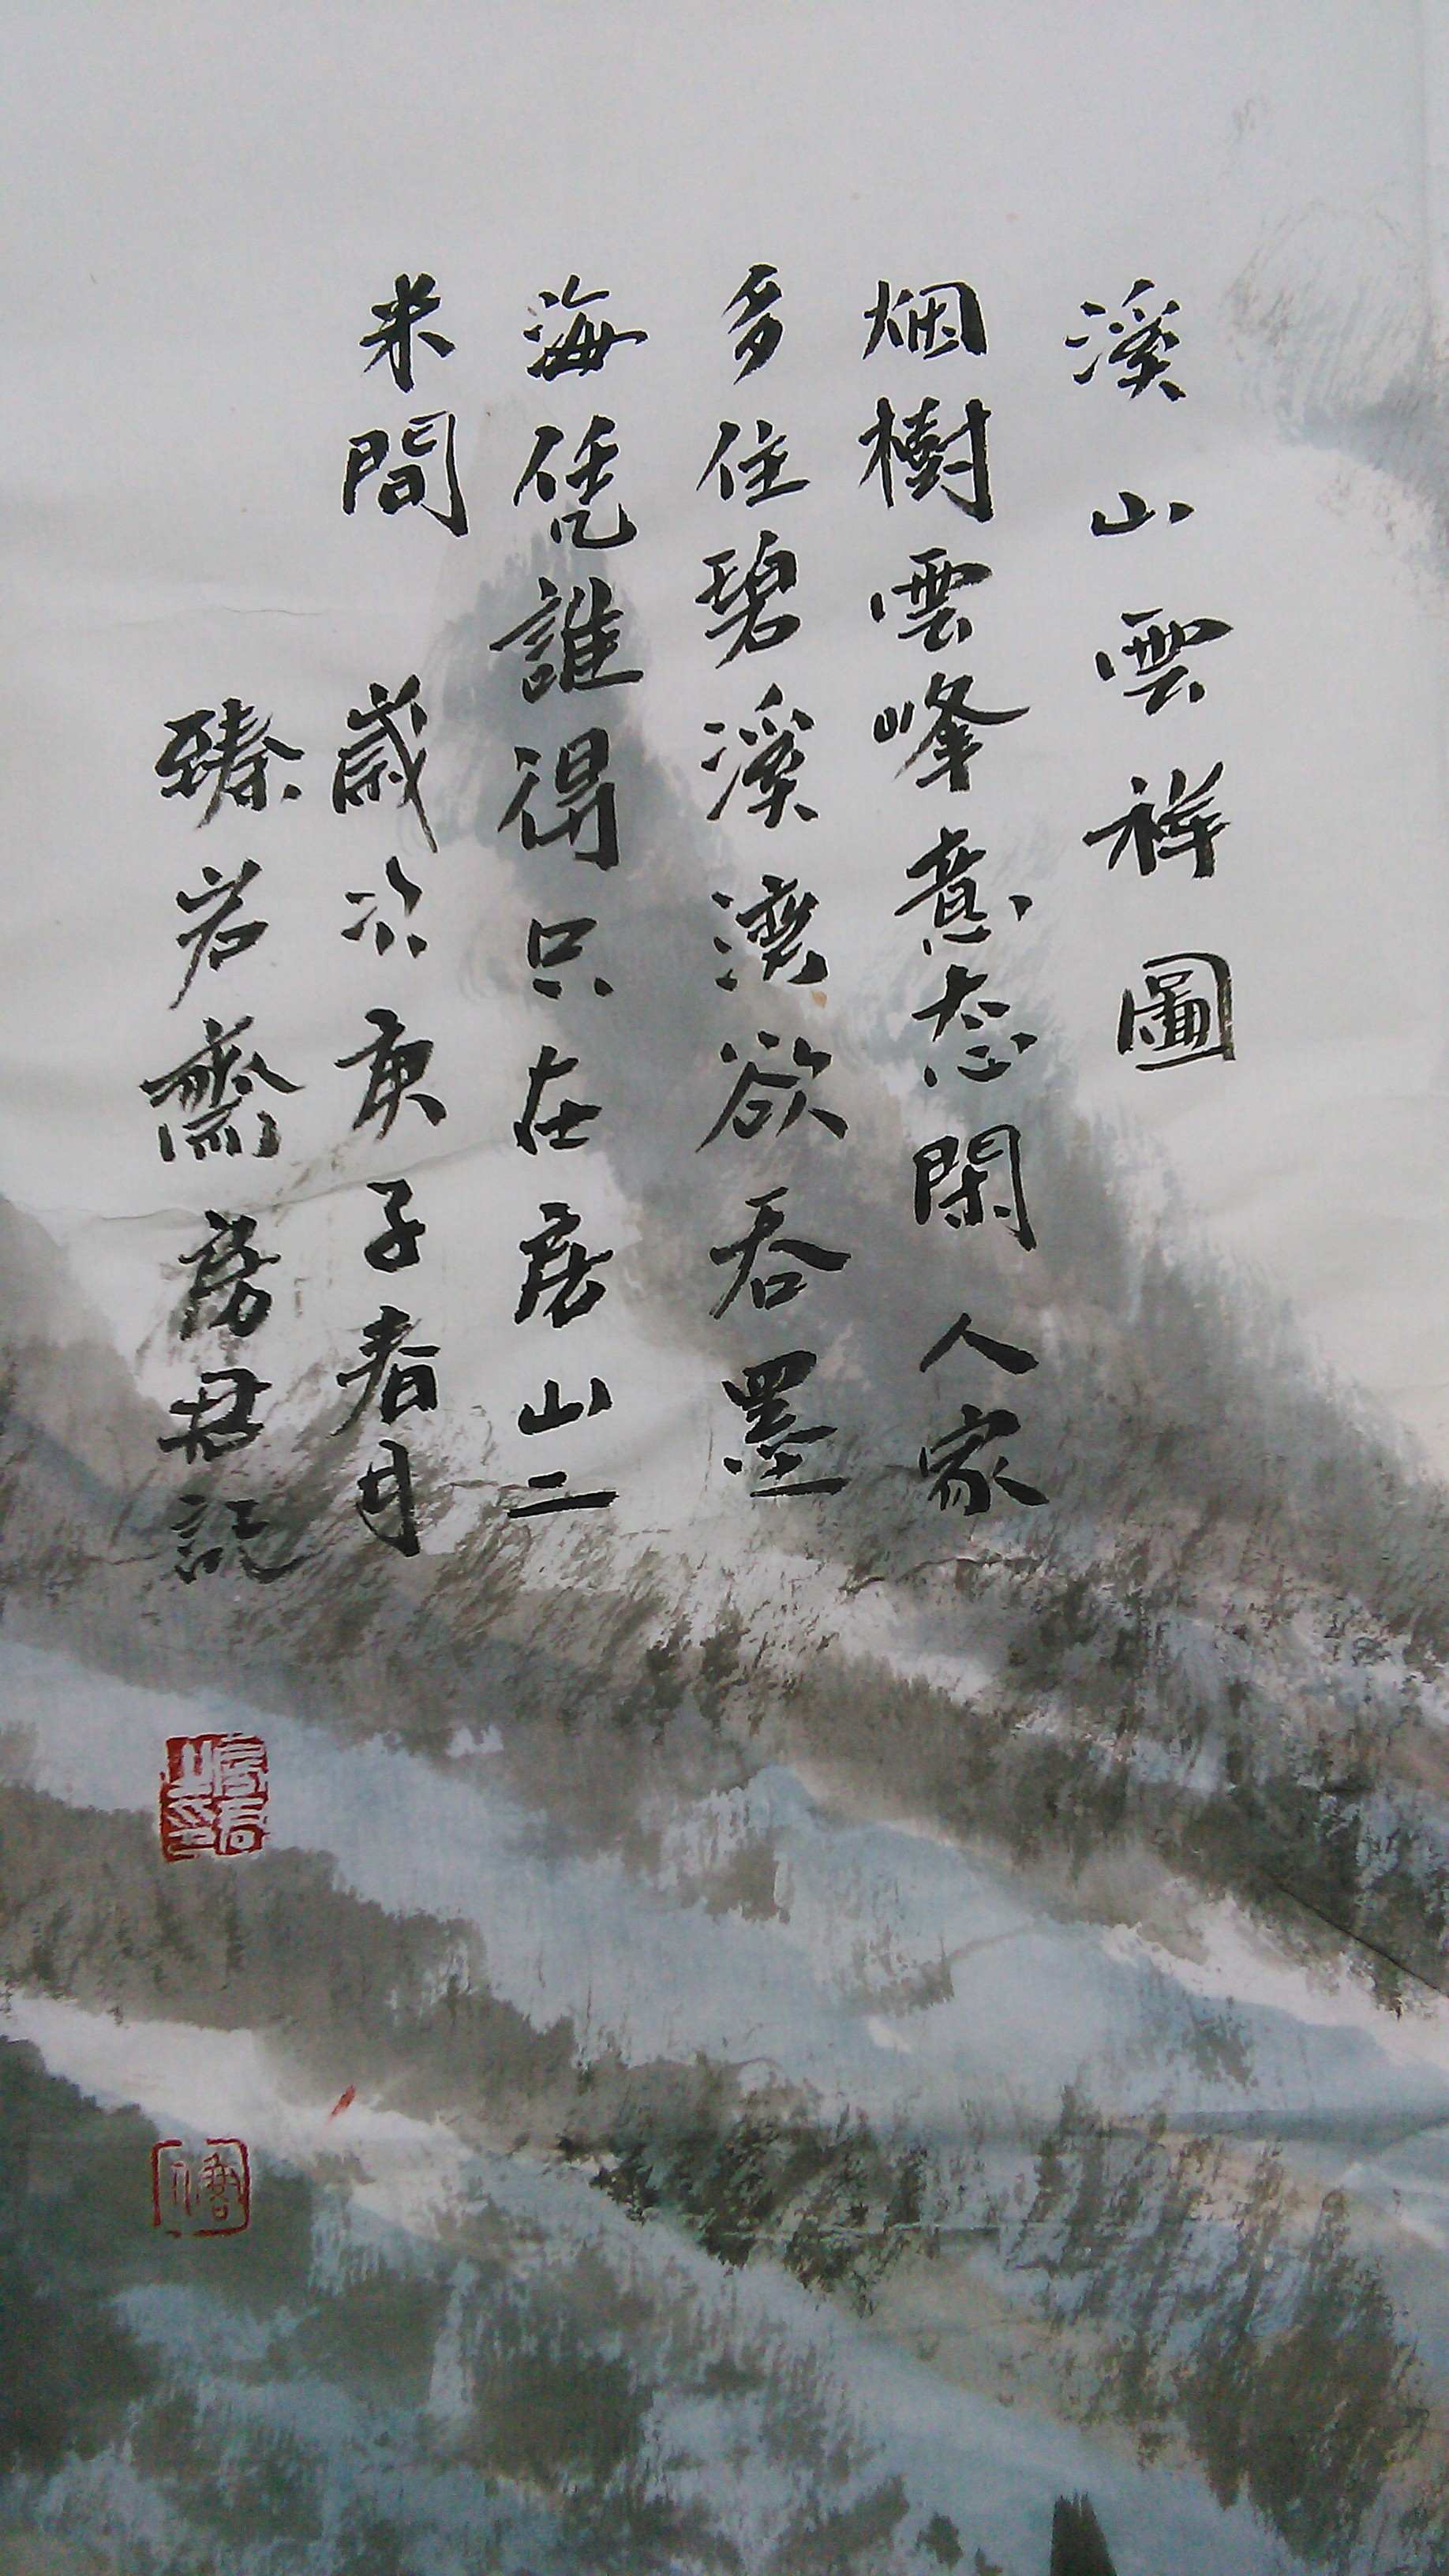 溪山雲祥圖
烟樹雲峰意态閑人家
多住碧溪灣欲吞墨
海凭誰得只在房山二
米間 歲次庚子春月
臻岩齋房君記